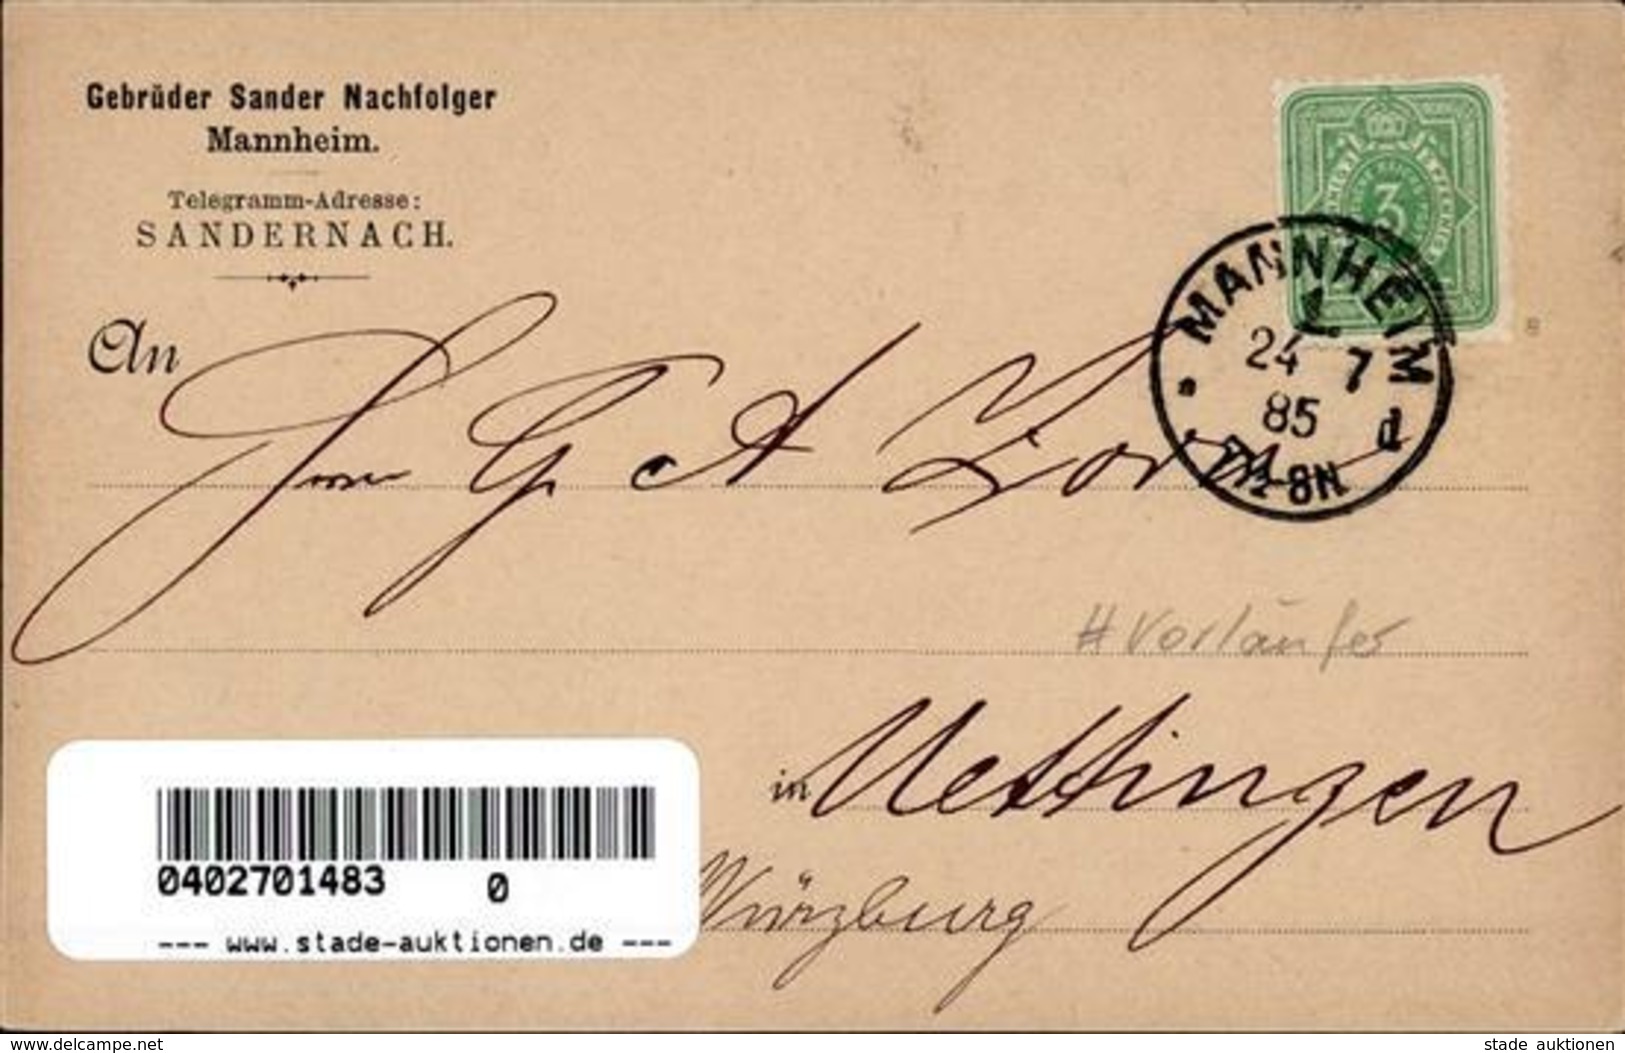 Gebrüder Sander Nachfolger
Mannheim.
Telegramm-Adresse:
SANDERNACH.
3
MANNHEIM
24 7
85
d
7½-8N
An
Herrn G & A
#Vorläufer
in Uettingen
Würzburg
0402701483 0
--- www.stade-auktionen.de ---
www.delcampe.net
stade auktionen